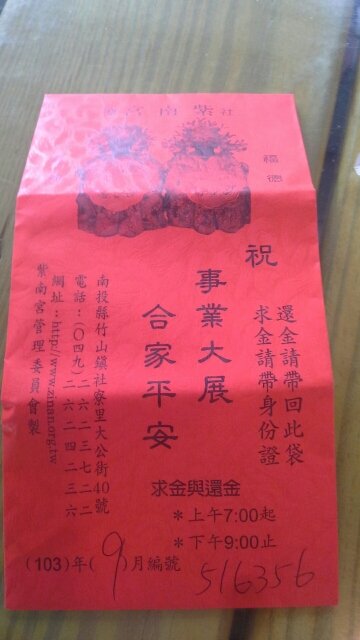 社紫南宮
福德
還金請帶回此袋
求金請帶身份證
祝
事業大展
合家平安
南投縣竹山鎮社寮里大公街40號
電話:(〇四九)二六二三七二二
二六二四二三六
網址:http://www.zinan.org.tw
紫南宮管理委員會製
求金與還金
*上午7:00起
*下午9:00止
(103)年(9)月編號 516356